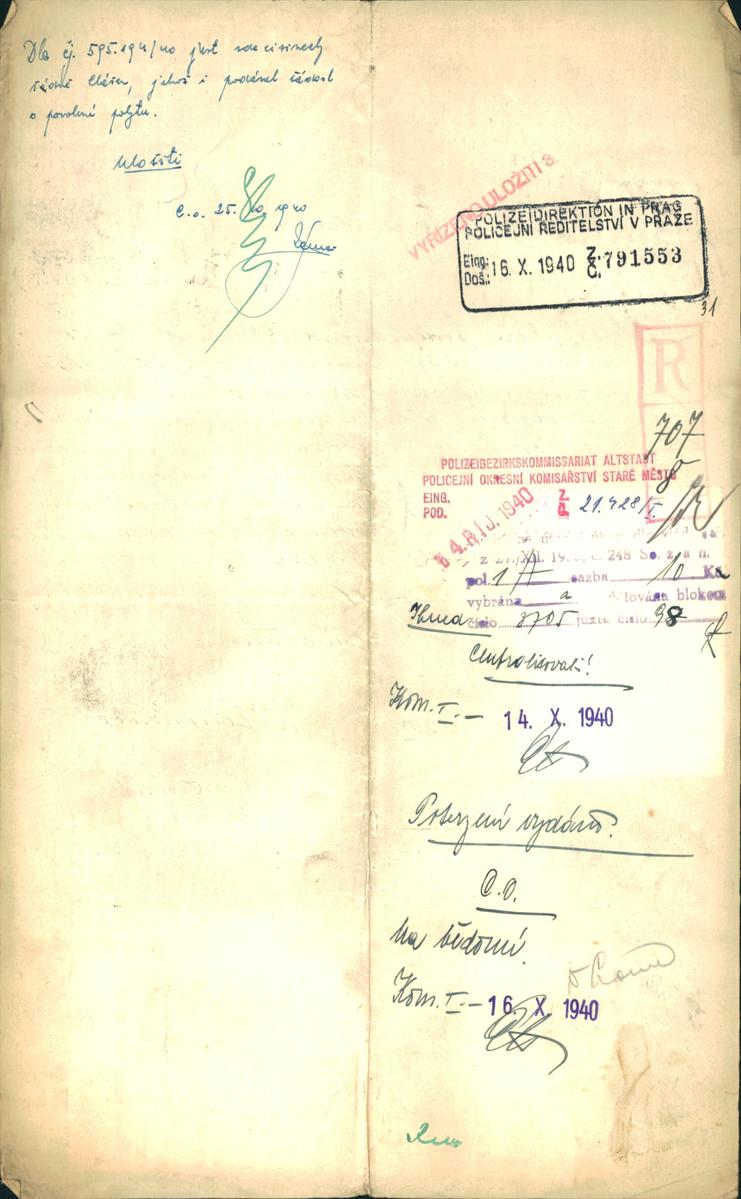 Dle čj. 595.194/40 jest
řádně hlášen, jakož i podával žádost
o povolení pobytu.
Uložiti
C.o. 25. 1940
VYŘÍZENO ULOŽITI 3
POLIZEIDIREKTION IN PRAG
POLICEJNÍ ŘEDITELSTVÍ V PRAZE
Eing.:
Doš.: 16. X. 1940 Z. Č. 791553
31
R
707
8
POLIZEIBEZIRKSKOMMISSARIAT ALTSTADT
POLICEJNÍ OKRESNÍ KOMISAŘSTVÍ STARÉ MĚSTO
EING.
POD. 14. ŘÍJ. 1940 Z. Č. 21.428/I.
z 27./XII. 19 č. 248 Sb. z. a n.
pol. 1 sazba 10 Kč
vybrána a blokem
číslo 3705 juxta číslo 98
Ihned
Centralisovati!
Kom. I. — 14. X. 1940
Potvrzení vydáno.
C.O.
na vědomí.
Kom. I. — 16. X. 1940